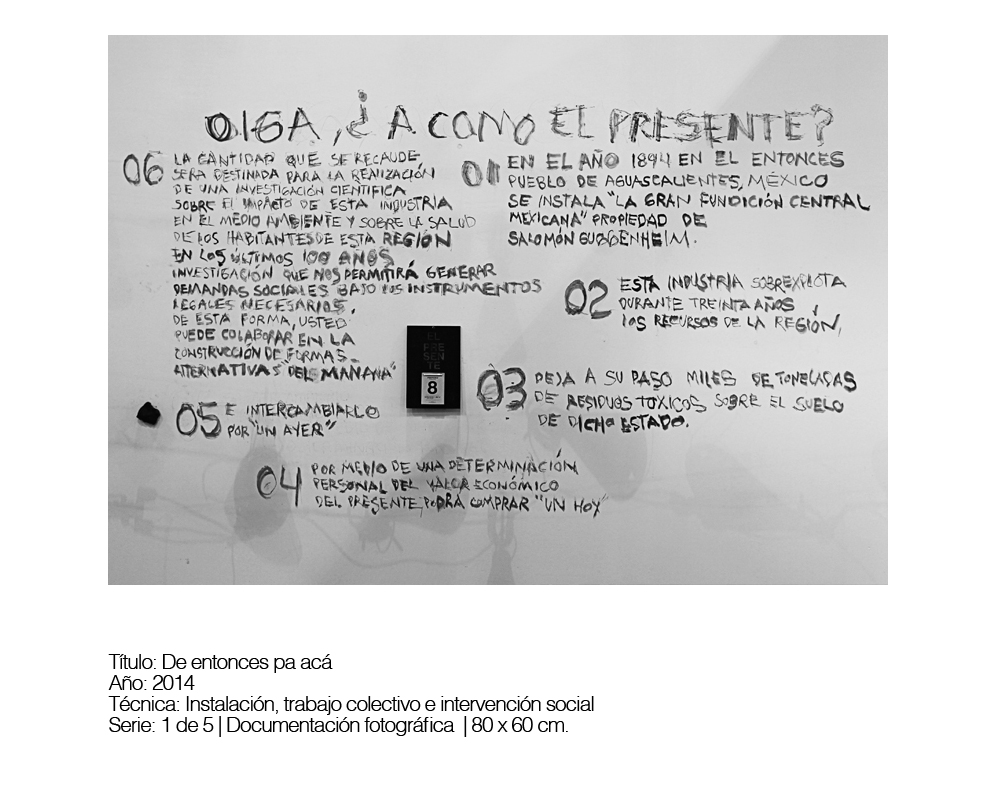 OIGA, ¿A COMO EL PRESENTE?
01
EN EL AÑO 1894 EN EL ENTONCES
PUEBLO DE AGUASCALIENTES, MÉXICO
SE INSTALA "LA GRAN FUNDICIÓN CENTRAL
MEXICANA" PROPIEDAD DE
SALOMÓN GUGGENHEIM.
02
ESTA INDUSTRIA SOBREXPLOTA
DURANTE TREINTA AÑOS
LOS RECURSOS DE LA REGIÓN,
03
DEJA A SU PASO MILES DE TONELADAS
DE RESIDUOS TOXICOS SOBRE EL SUELO
DE DICHO ESTADO.
04
POR MEDIO DE UNA DETERMINACIÓN
PERSONAL DEL VALOR ECONÓMICO
DEL PRESENTE, PODRÁ COMPRAR "UN HOY"
05
E INTERCAMBIARLO
POR "UN AYER"
06
LA CANTIDAD QUE SE RECAUDE,
SERA DESTINADA PARA LA REALIZACIÓN
DE UNA INVESTIGACIÓN CIENTIFICA
SOBRE EL IMPACTO DE ESTA INDUSTRIA
EN EL MEDIO AMBIENTE Y SOBRE LA SALUD
DE LOS HABITANTES DE ESTA REGIÓN
EN LOS ÚLTIMOS 100 AÑOS
INVESTIGACIÓN QUE NOS PERMITIRÁ GENERAR
DEMANDAS SOCIALES BAJO LOS INSTRUMENTOS
LEGALES NECESARIOS.
DE ESTA FORMA, USTED
PUEDE COLABORAR EN LA
CONSTRUCCIÓN DE FORMAS
ALTERNATIVAS "DEL MAÑANA"
EL
PRE
SEN
TE
8
Título: De entonces pa acá
Año: 2014
Técnica: Instalación, trabajo colectivo e intervención social
Serie: 1 de 5 | Documentación fotográfica | 80 x 60 cm.